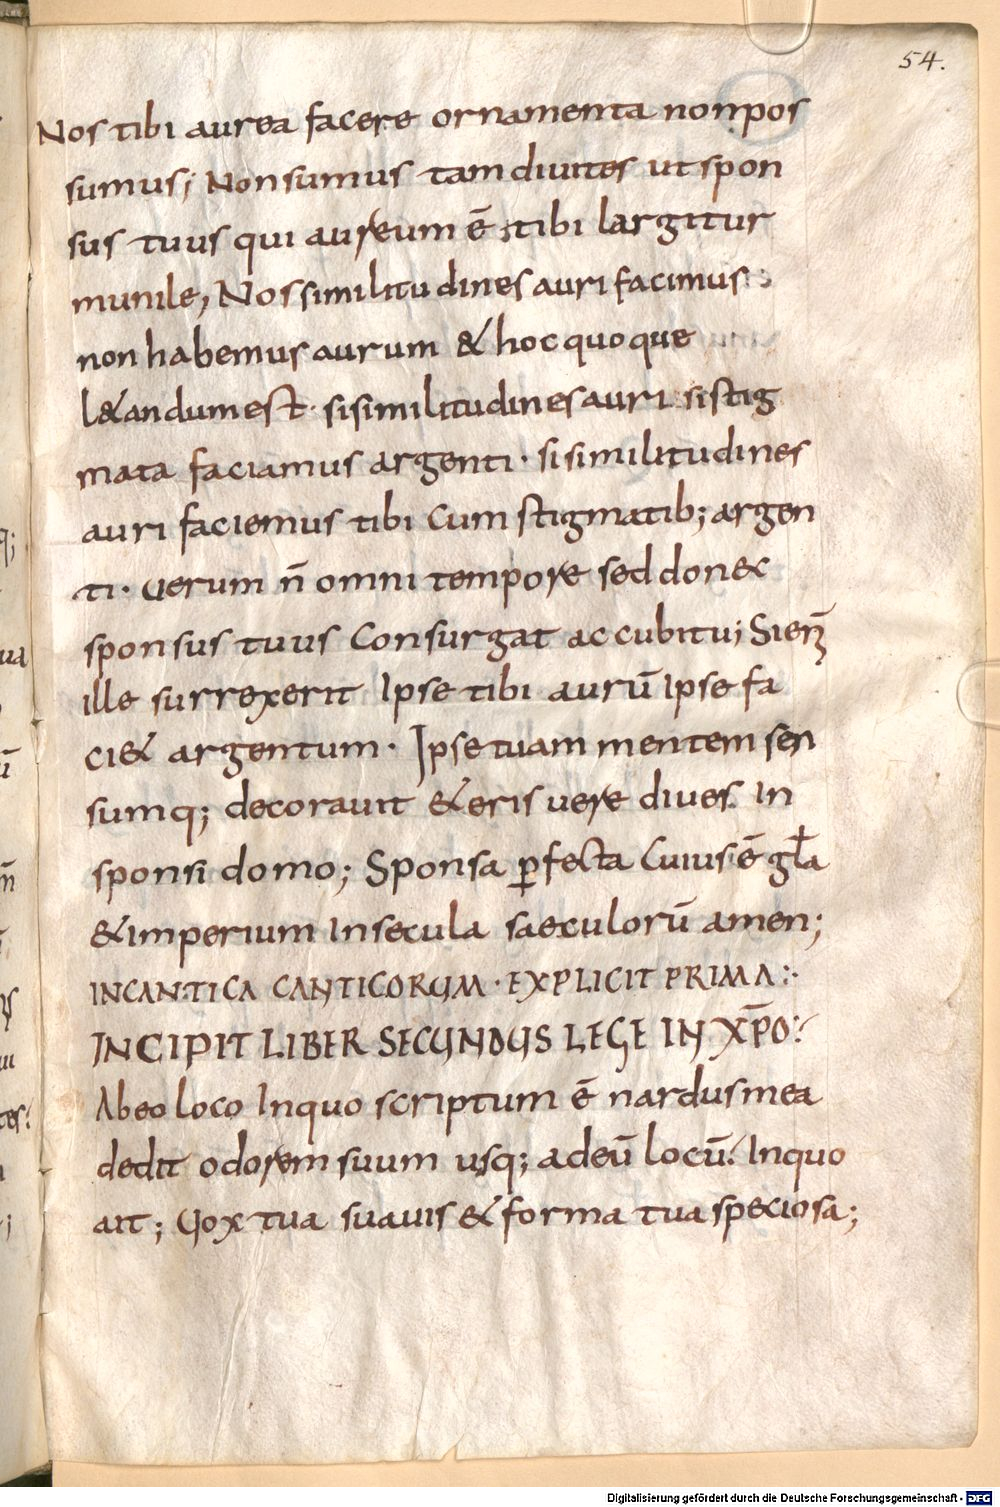 54.
Nos tibi aurea facere ornamenta non pos
sumus; Non sumus tam diuites ut spon
sus tuus qui aureum ē tibi largitur
munile, Nos similitudines auri facimus
non habemus aurum & hoc quoque
l&andum est· si similitudines auri si stig
mata faciamus argenti· si similitudines
auri faciemus tibi cum stigmatib; argen
ti· Uerum n̄ omni tempore sed donec
sponsus tuus consurgat accubitu; Si enī
ille surrexerit Ipse tibi aurū Ipse fa
ci& argentum· Ipse tuam mentem sen
sumq; decorauit & eris uere diues In
sponsi domo; Sponsa ꝑfecta Cuius ē gła
& imperium In secula saeculorū amen;
INCANTICA CANTICORUM· EXPLICIT PRIMA:·
INCIPIT LIBER SECUNDUS LEGE IN XP̄O:
Ab eo loco In quo scriptum ē nardus mea
dedit odorem suum usq; ad eū locū: In quo
ait; Uox tua suauis & forma tua speciosa;
Digitalisierung gefördert durch die Deutsche Forschungsgemeinschaft - DFG